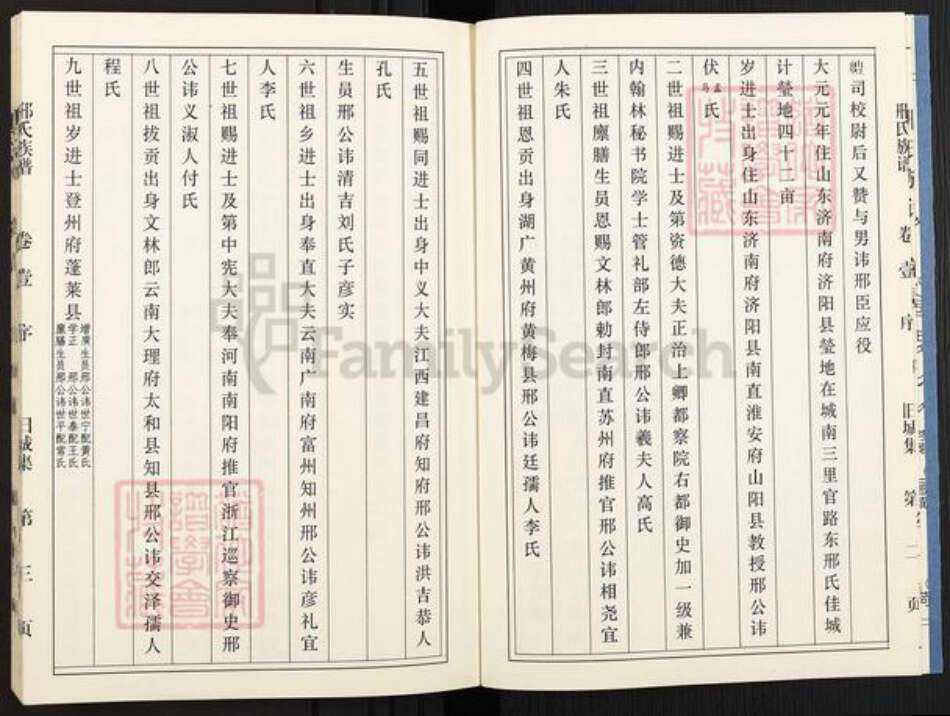 司校尉后又赞与男讳邢臣应役
大元元年住山东济南府济阳县莹地在城南三里官路东邢氏佳城
计莹地四十二亩
岁进士出身住山东济南府济阳县南直淮安府山阳县教授邢公讳
伏孟马氏
二世祖赐进士及第资德大夫正治上卿都察院右都御史加一级兼
内翰林秘书院学士管礼部左侍郎邢公讳羲夫人高氏
三世祖廪膳生员恩赐文林郎勅封南直苏州府推官邢公讳相尧宜
人朱氏
四世祖恩贡出身湖广黄州府黄梅县邢公讳廷孺人李氏
邢氏族谱 卷壹 序 旧城集 第二页
五世祖赐同进士出身中义大夫江西建昌府知府邢公讳洪吉恭人
孔氏
生员邢公讳清吉刘氏子彦实
六世祖乡进士出身奉直大夫云南广南府富州知州邢公讳彦礼宜
人李氏
七世祖赐进士及第中宪大夫奉河南南阳府推官浙江巡察御史邢
公讳义淑人付氏
八世祖拔贡出身文林郎云南大理府太和县知县邢公讳交泽孺人
程氏
九世祖岁进士登州府蓬莱县
增廣生员邢公讳世宁配黄氏
学正 邢公讳世泰配王氏
廪膳生员邢公讳世平配常氏
邢氏族谱 卷壹 序 旧城集 第三页
FamilySearch